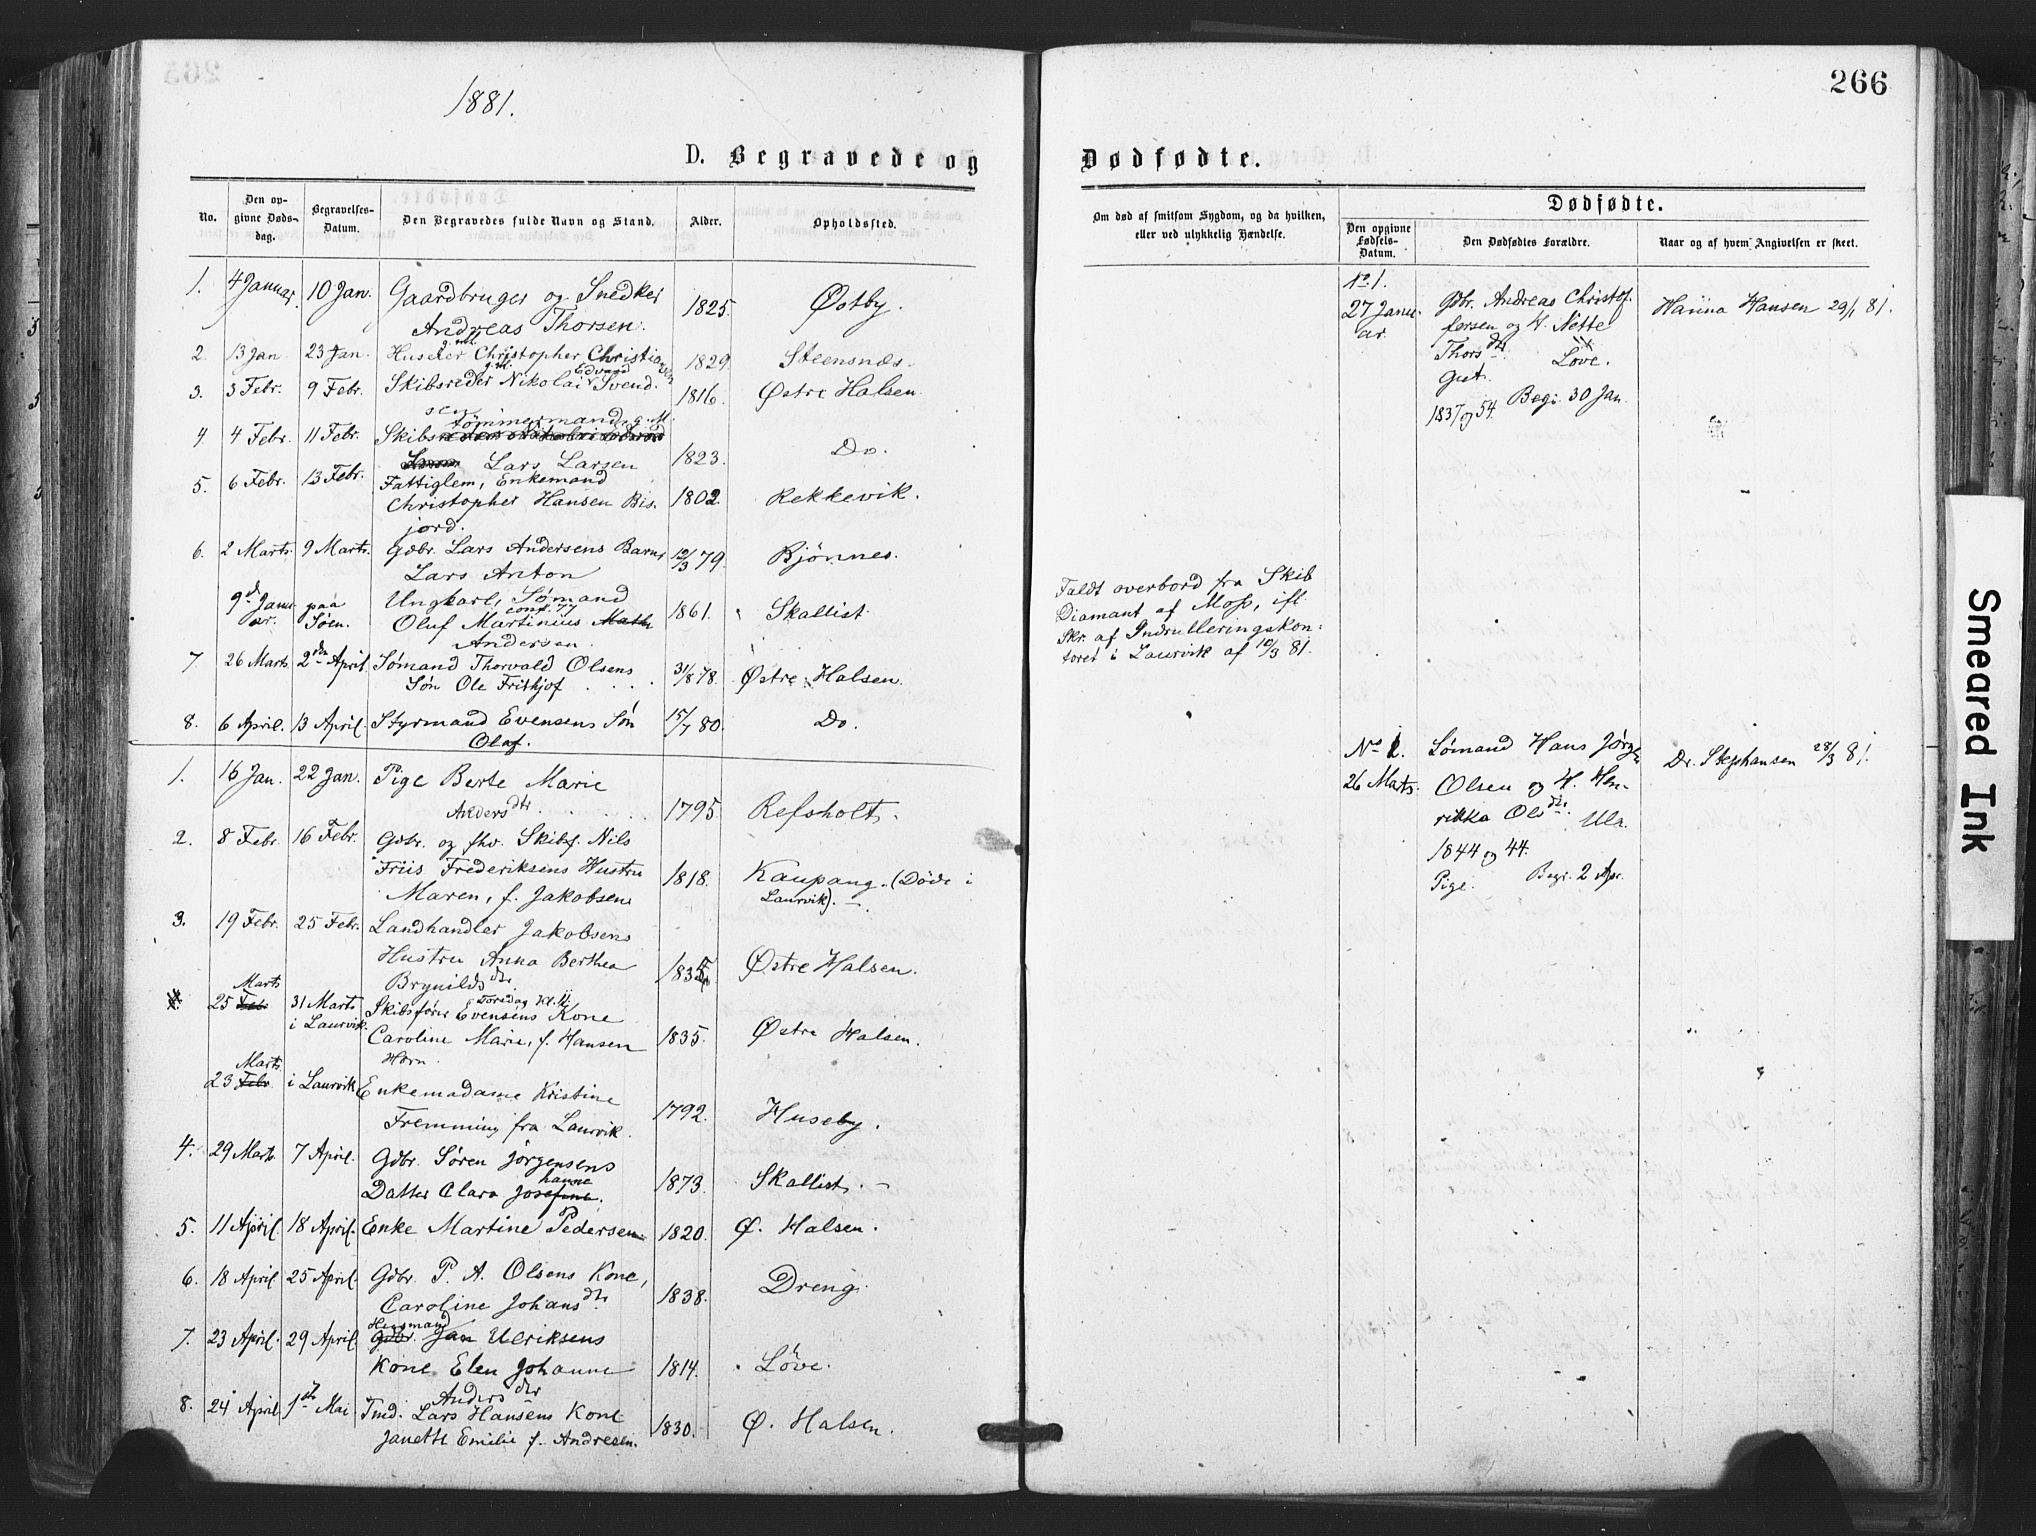 1881.
266
D. Begravede og Dødfødte.
No.
Den opgivne Dødsdag.
Begravelses-Datum.
Den Begravedes fulde Navn og Stand.
Alder.
Opholdssted.
Om død af smitsom Sygdom, og da hvilken, eller ved ulykkelig Hændelse.
Dødfødte.
Den opgivne Fødsels-Datum.
Den Dødfødtes Forældre.
Naar og af hvem Angivelsen er skeet.
1. 4 Januar. 10 Jan. Gaardbruger og Snedker
Andreas Thorsen. 1825. Østby.
2. 13 Jan 23 Jan. Huseier g. M. Christopher Christiansen 1829. Steensnæs.
3. 3 Febr. 9 Febr. Skibsreder g. M. Nikolai Edvard Svend-
sen 1816. Østre Halsen.
4. 4 Febr. 11 Febr. Skibstømmermand g. M.
Lars Larsen 1823. Do.
5. 6 Febr. 13 Febr. Fattiglem, Enkemand
Christopher Hansen Bis-
jord. 1802. Rekkevik.
6. 2 Marts. 9 Marts. Gdbr. Lars Andersens Barn,
Lars Anton 12/3 79. Bjønnes.
9d Janu-
ar. paa
Søen. Ungkarl, Sømand
conf. 77
Oluf Martinius
Andersen. 1861. Skallist.
7. 26 Marts. 2den April. Sømand Thorvald Olsens
Søn Ole Frithjof . . . . 31/8 78. Østre Halsen.
8. 6 April. 13 April. Styrmand Evensens Søn
Olaf. 15/7 80. Do.
1. 16 Jan. 22 Jan. Pige Berte Marie
Andersdtr. 1795. Refsholt.
2. 8 Febr. 16 Febr. Gdbr. og fhv. Skibsf. Nils
Friis Frederiksens Hustru
Maren, f. Jakobsen 1818. Kaupang. (Døde i
Laurvik).
3. 19 Febr. 25 Febr. Landhandler Jakobsens
Hustru Anna Berthea
Brynildsdtr. Østre Halsen.
25 Marts 31 Marts
i Laurvik. Torsdag Kl. 11.
Skibsfører Evensens Kone
Caroline Marie, f. Hansen
Horn. 1835. Østre Halsen.
23 Marts i Laurvik Enkemadame Kristine
Fremming fra Laurvik. 1792. Huseby.
4. 29 Marts. 7 April. Gdbr. Søren Jørgensens
Datter Clara Johanne. 1873. Skallist.
5. 11 April. 18 April. Enke Martine Pedersen 1820. Ø. Halsen.
6. 18 April. 25 April. Gdbr. P. A. Olsens Kone,
Caroline Johansdtr. 1838. Dreng.
7. 23 April. 29 April. Husmand Jan Ulriksens
Kone Elen Johanne
Andersdtr 1814. Løve.
8. 24 April 1ste Mai Tmd. Lars Hansens Kone
Janette Emilie f. Andresen. 1830. Ø. Halsen.
Faldt overbord fra Skib
Diamant af Moss, ifl.
Skr. af Indrulleringskon-
toret i Laurvik af 10/3 81.
No 1.
27 Janu-
ar.
Gdbr. Andreas Christof-
fersen og H. Nette
Thorsdtr. Løve.
Gut.
1837 og 54. Begr. 30 Jan.
Hanna Hansen 29/1 81.
No 2.
26 Marts.
Sømand Hans Jørgen
Olsen og H. Hen-
rikka Olsdtr. Ula.
1844 og 44.
Pige. Begr. 2 Apr.
Dr. Stephansen 28/3 81.
Smeared Ink